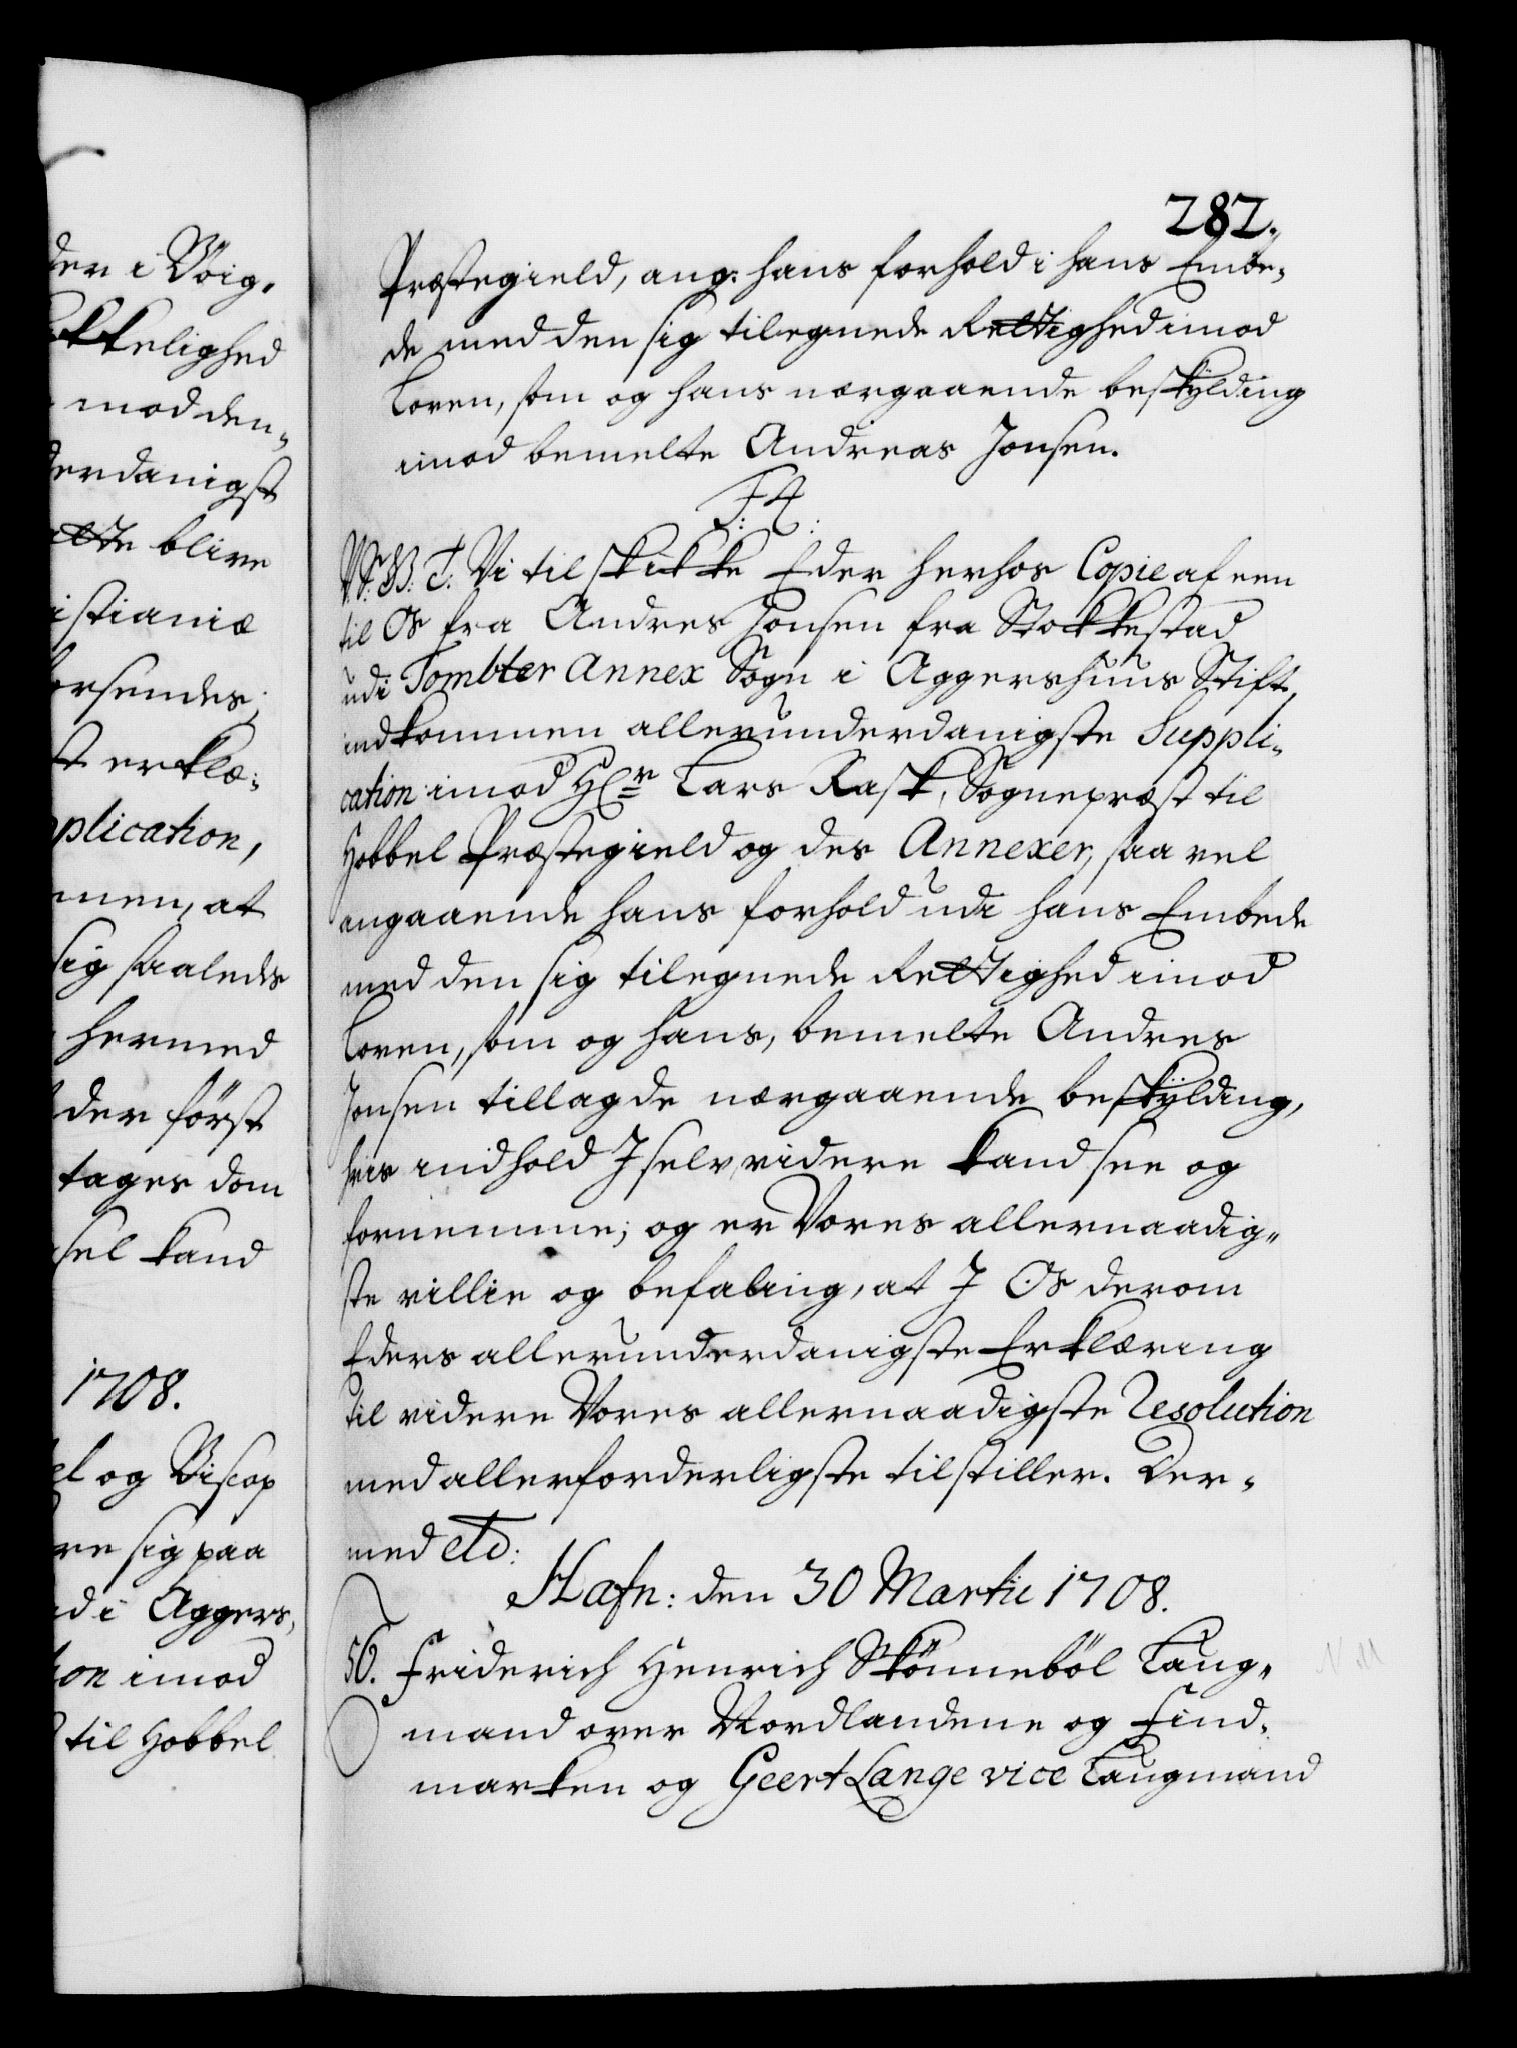 der i Vöig,
kkelighed
mod den,,
derdanigst
ette blive
istianiæ
forsendes,
st erklæ,,
pplication,
men, at
sig saaledes
hermed
der först
tages dom
sel kand
1708.
el og Biscop
re sig paa
di Aggers,
ion imod
til Hobbel
282.
Præstegield, ang: hans forhold i hans Embe,,
de med den sig tilegnede Rettighed imod
Loven, som og hans nærgaaende beskÿlding
imod bemelte Andreas Jonsen.
F: 4:
V. S. G. B. T. Vi tilskikke Eder herhos Copie af een
til Os fra Andres Jonsen fra Stokkestad
udi Tombter Annex Sogn i Aggershuus Stift,
indkommen allerunderdanigste Suppli,,
cation imod Hr Lars Rask, Sognepræst til
Hobbel Præstegield og des Annexer, saa vel
angaaende hans forhold udi hans Embede
med den sig tilegnede Rettighed imod
Loven, som og hans, bemelte Andres
Jonsen tillagde nærgaaende beskÿlding,
hvis indhold I selv videre kand see og
fornemme; og er Vores allernaadig,,
ste villie og befaling, at I Os derom
Eders allerunderdanigste Erklæring
til videre Vores allernaadigste Resolution
med allerforderligste tilstiller. Der,,
med etc:
Hafn: den 30 Martii 1708.
56. Friderich Henrich Skönneböl Laug,,
mand over Nordlandene og Find,,
marken og Geert Lange vice Laugmand